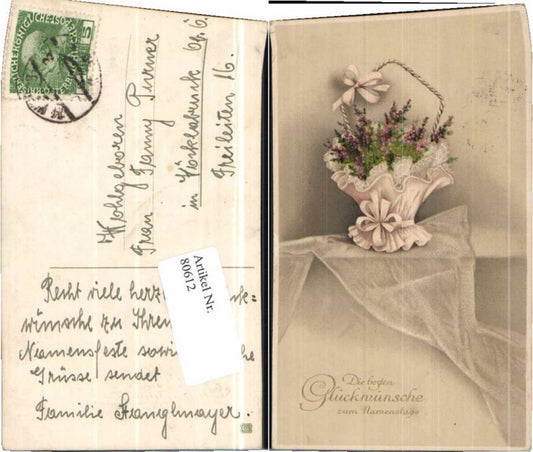 5
Wohlgeboren
Frau Fanny Turner
in Vöcklabruck
Freileiten 16.
Artikel Nr.
80612
Recht viele herz
wünsche zu Ihrem
Namensfeste sowie
Grüsse sendet
Familie Stanglmayer.
Die besten
Glückwünsche
zum Namenstage